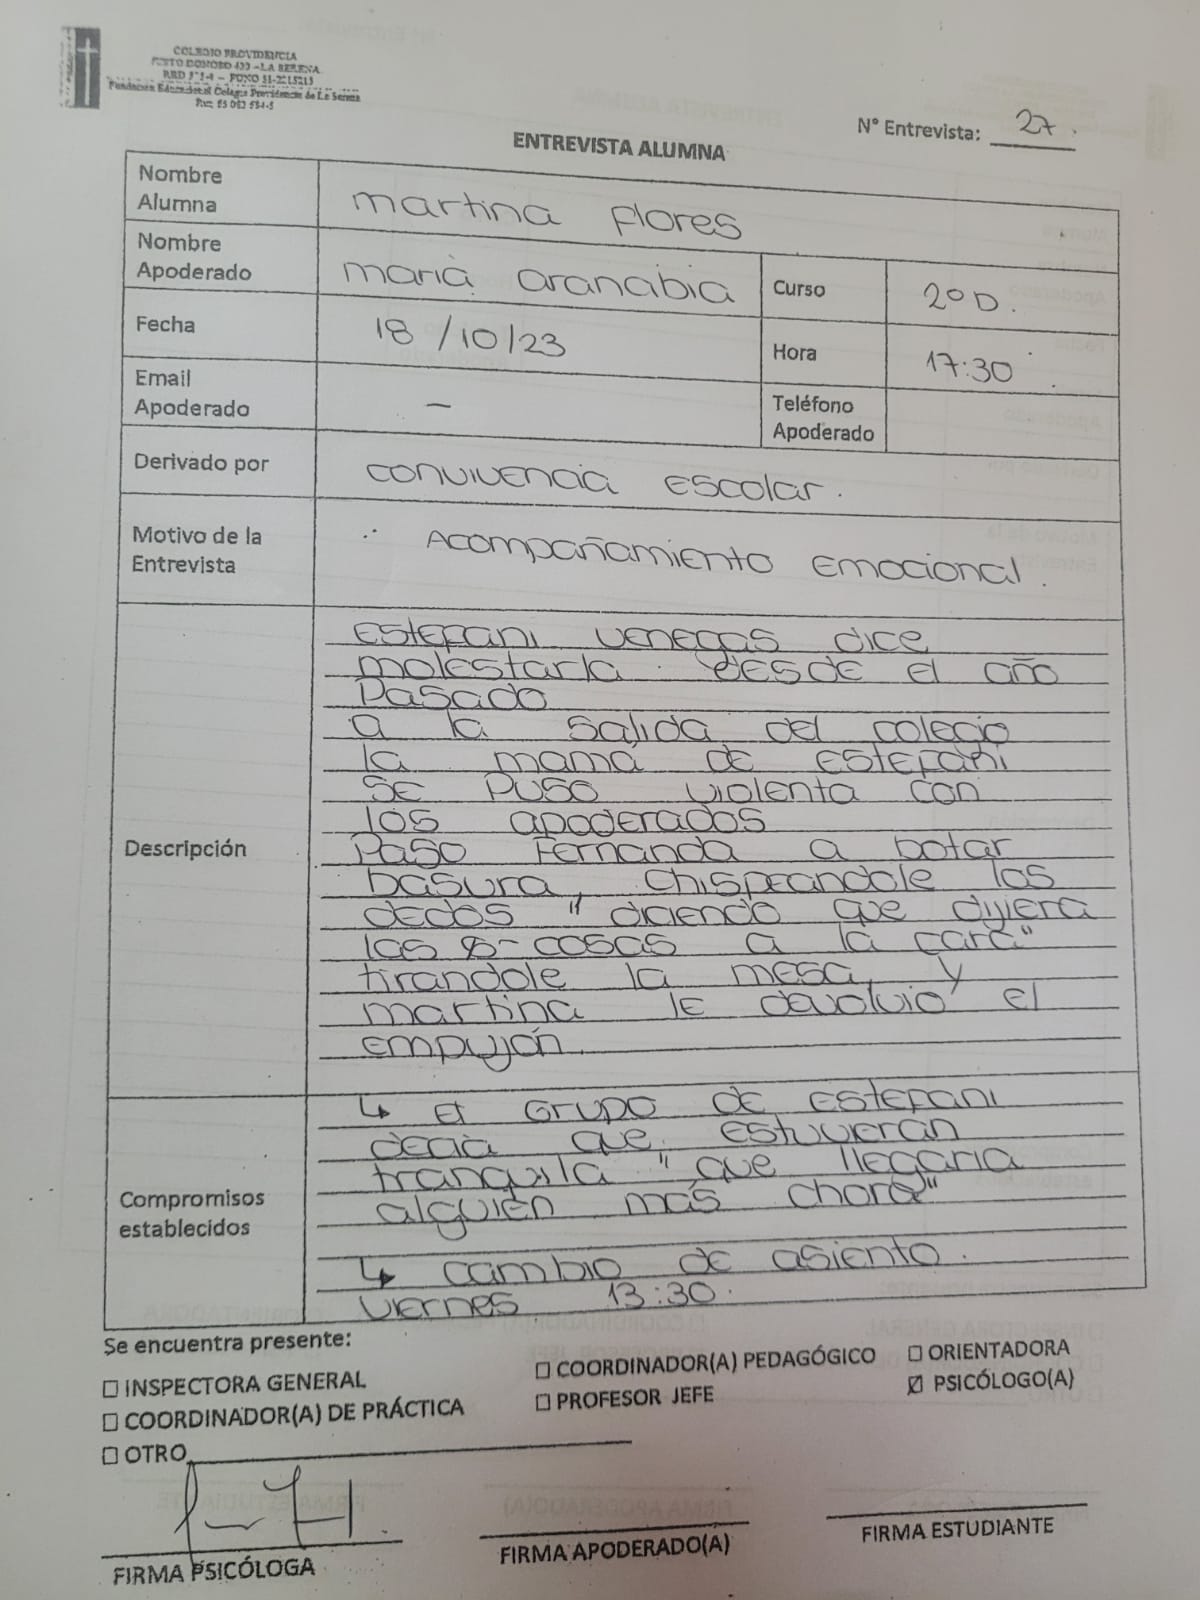 COLEGIO PROVIDENCIA
JUSTO DONOSO 433 - LA SERENA
Fundación Educacional Colegio Providencia de La Serena
N° Entrevista: 27.
ENTREVISTA ALUMNA
Nombre
Alumna
martina flores
Nombre
Apoderado
maria aranabia
Curso
2° D.
Fecha
18/10/23
Hora
17:30
Email
Apoderado
-
Teléfono
Apoderado
Derivado por
convivencia Escolar.
Motivo de la
Entrevista
Acompañamiento Emocional.
Descripción
Estefani venegas dice
molestarla desde el año
Pasado
a la salida del colegio
la mamá de Estefani
se puso violenta con
los apoderados
Paso Fernanda a botar
basura, chispeandole los
dedos "diciendo que dijera
las cosas a la cara"
tirandole la mesa, y
martina le devolvio el
empujón.
Compromisos
establecidos
↳ el grupo de Estefani
decia que estuvieran
tranquila "que llegaria
alguien más chora"
↳ cambio de asiento.
viernes 13:30.
Se encuentra presente:
☐ INSPECTORA GENERAL
☐ COORDINADOR(A) PEDAGÓGICO
☐ ORIENTADORA
☐ COORDINADOR(A) DE PRÁCTICA
☐ PROFESOR JEFE
☑ PSICÓLOGO(A)
☐ OTRO
FIRMA PSICÓLOGA
FIRMA APODERADO(A)
FIRMA ESTUDIANTE